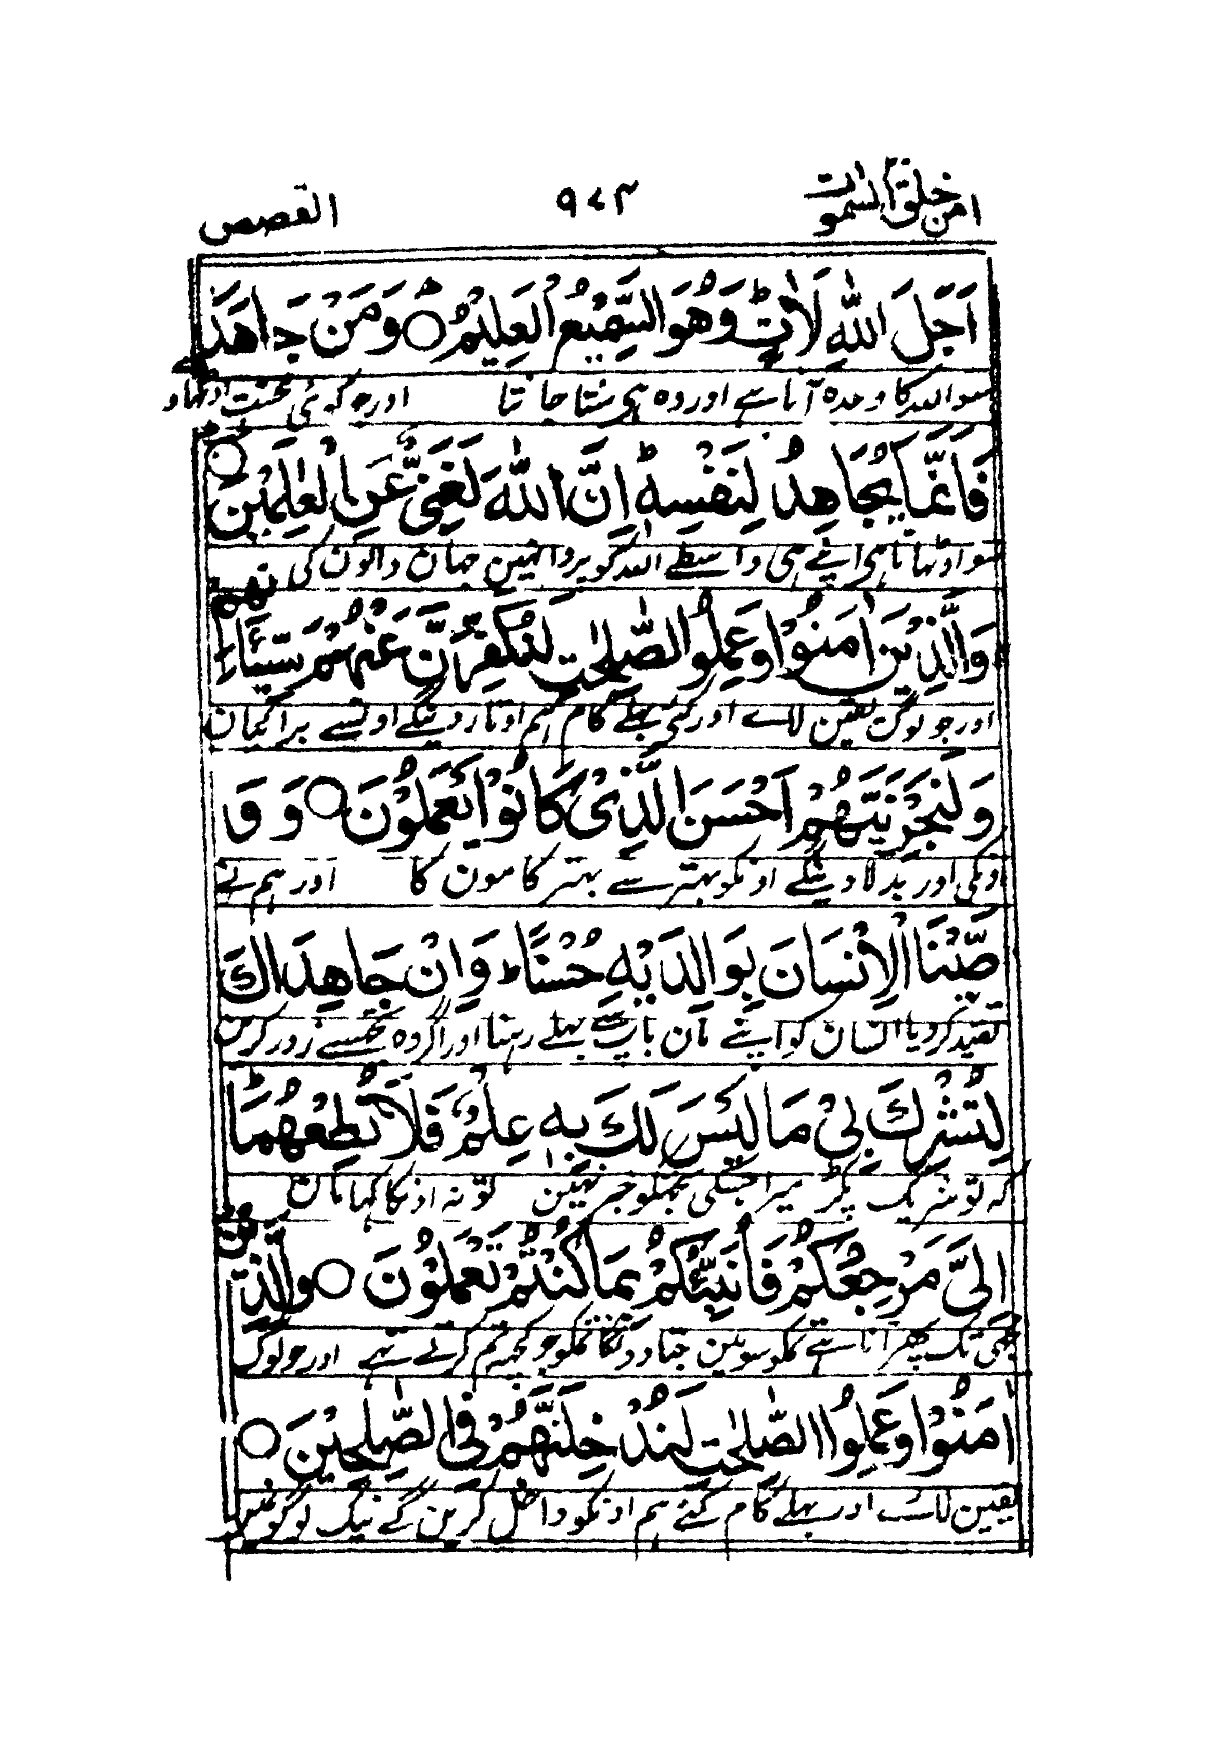 امن خلق السموات
۹۷۳
القصص
اَجَلَ اللّٰهِ لَاٰتٍ ؕ وَهُوَ السَّمِيْعُ الْعَلِيْمُ ○ وَمَنْ جَاهَدَ
سو اللہ کا وعدہ آتا ہے اور وہ ہی سنتا جانتا اور جو کوئی محنت اوٹھاوے
فَاِنَّمَا يُجَاهِدُ لِنَفْسِهٖ ؕ اِنَّ اللّٰهَ لَغَنِيٌّ عَنِ الْعٰلَمِيْنَ ○
سو اوٹھاتا ہی اپنے ہی واسطے اللہ کو پروا نہین جہان والون کی
وَالَّذِيْنَ اٰمَنُوْا وَعَمِلُوا الصّٰلِحٰتِ لَنُكَفِّرَنَّ عَنْهُمْ سَيِّاٰتِهِمْ
اور جو لوگ یقین لائے اور کئے بھلے کام ہم اوتار دینگے اونسے برائیان
وَلَنَجْزِيَنَّهُمْ اَحْسَنَ الَّذِيْ كَانُوْا يَعْمَلُوْنَ ○ وَ وَ
اونکی اور بدلا دینگے اونکو بہتر سے بہتر کامون کا اور ہم نے
صَّيْنَا الْاِنْسَانَ بِوَالِدَيْهِ حُسْنًا ؕ وَاِنْ جَاهَدَاكَ
تقید کردیا انسان کو اپنے مان باپ سے بھلے رہنا اور اگر وہ تجھسے زور کرین
لِتُشْرِكَ بِيْ مَا لَيْسَ لَكَ بِهٖ عِلْمٌ فَلَا تُطِعْهُمَا ؕ
کہ تو شریک پکڑ میرا جسکی تجھکو خبر نہین تو نہ اونکا کہا مان
اِلَيَّ مَرْجِعُكُمْ فَاُنَبِّئُكُمْ بِمَا كُنْتُمْ تَعْمَلُوْنَ ○ وَالَّذِيْنَ
مجھی تک پھر آنا ہے تمکو سو مین جتا دونگا تمکو جو کچھ تم کرتے تھے اور جو لوگ
اٰمَنُوْا وَعَمِلُوا الصّٰلِحٰتِ لَنُدْخِلَنَّهُمْ فِي الصّٰلِحِيْنَ ○
یقین لائے اور بھلے کام کئے ہم اونکو داخل کرین گے نیک لوگونمین